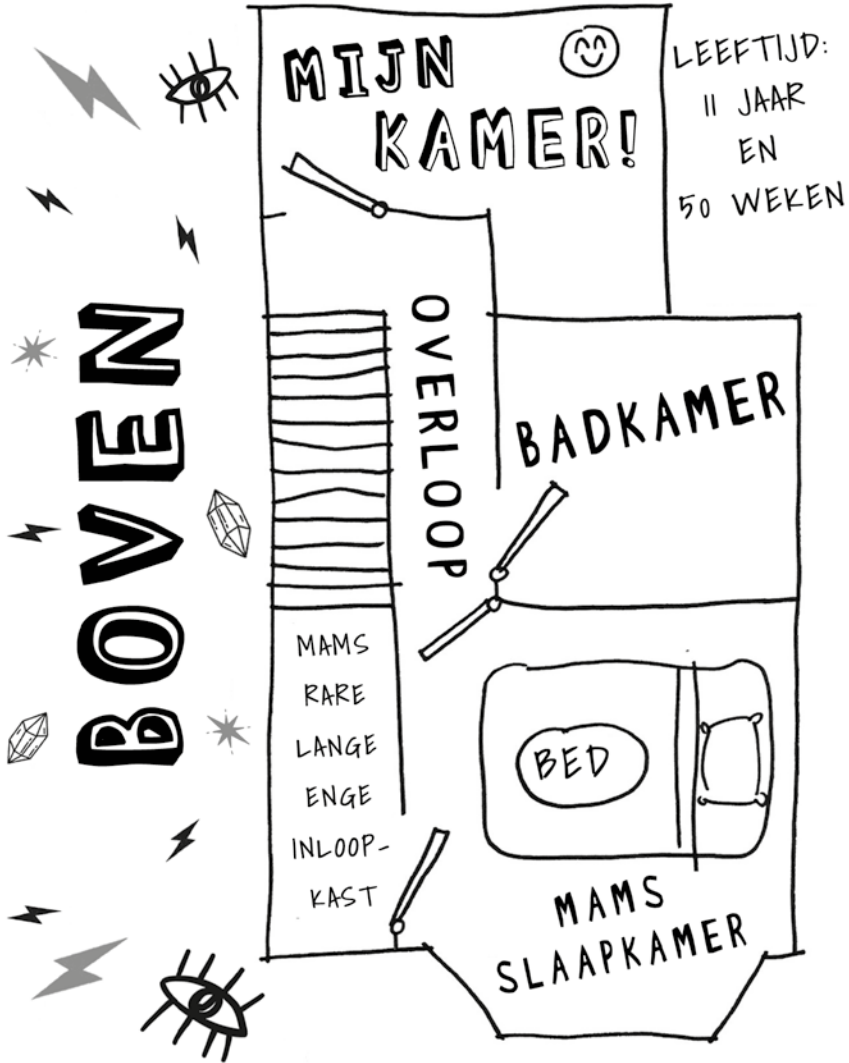 BOVEN
MIJN
KAMER!
LEEFTIJD:
11 JAAR
EN
50 WEKEN
OVERLOOP
BADKAMER
MAMS
RARE
LANGE
ENGE
INLOOP-
KAST
BED
MAMS
SLAAPKAMER